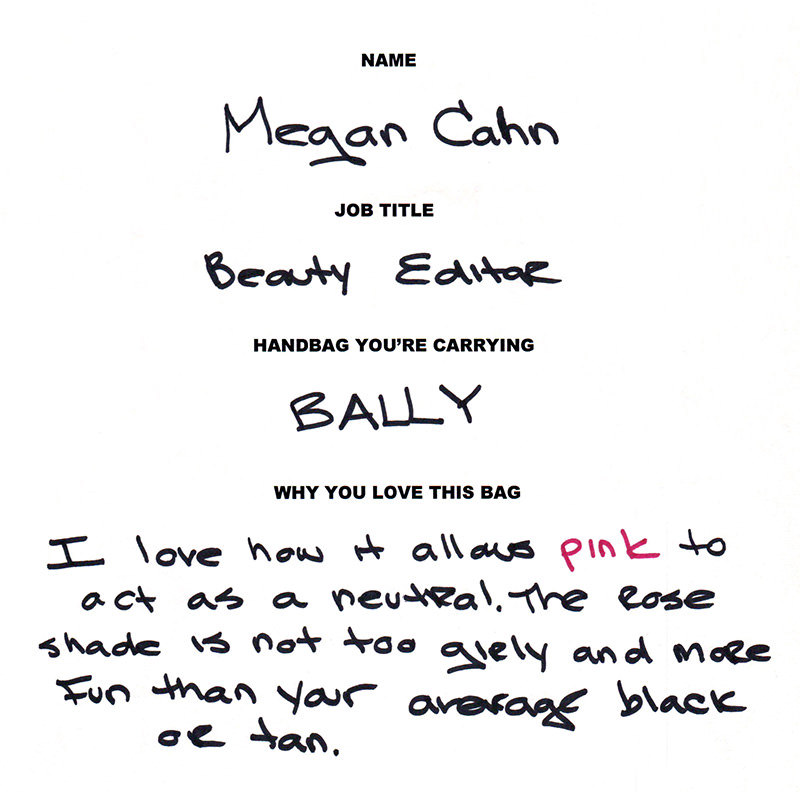 NAME
Megan Cahn
JOB TITLE
Beauty Editor
HANDBAG YOU'RE CARRYING
BALLY
WHY YOU LOVE THIS BAG
I love how it allows pink to
act as a neutral. The Rose
shade is not too girly and more
Fun than your average black
or tan.